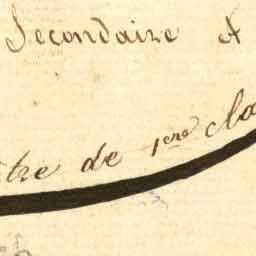 Secondaire et
tre de 1ere cla